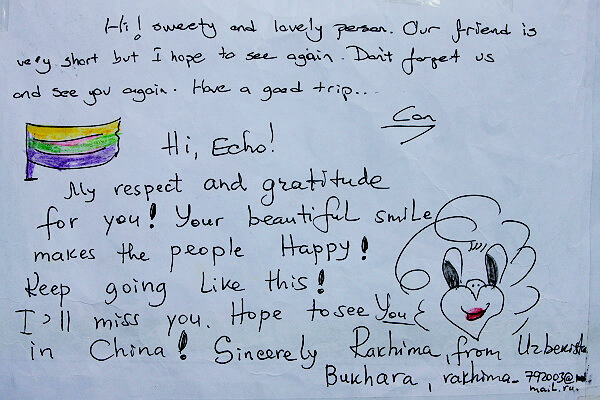 Hi! sweety and lovely person. Our friend is
very short but I hope to see again. Don't forget us
and see you again. Have a good trip...
Can
Hi, Echo!
My respect and gratitude
for you! Your beautiful smile
makes the people Happy!
Keep going Like this!
I'll miss you. Hope to see You
in China! Sincerely Rakhima, from Uzbekista
Bukhara, rakhima_792003@
mail.ru.